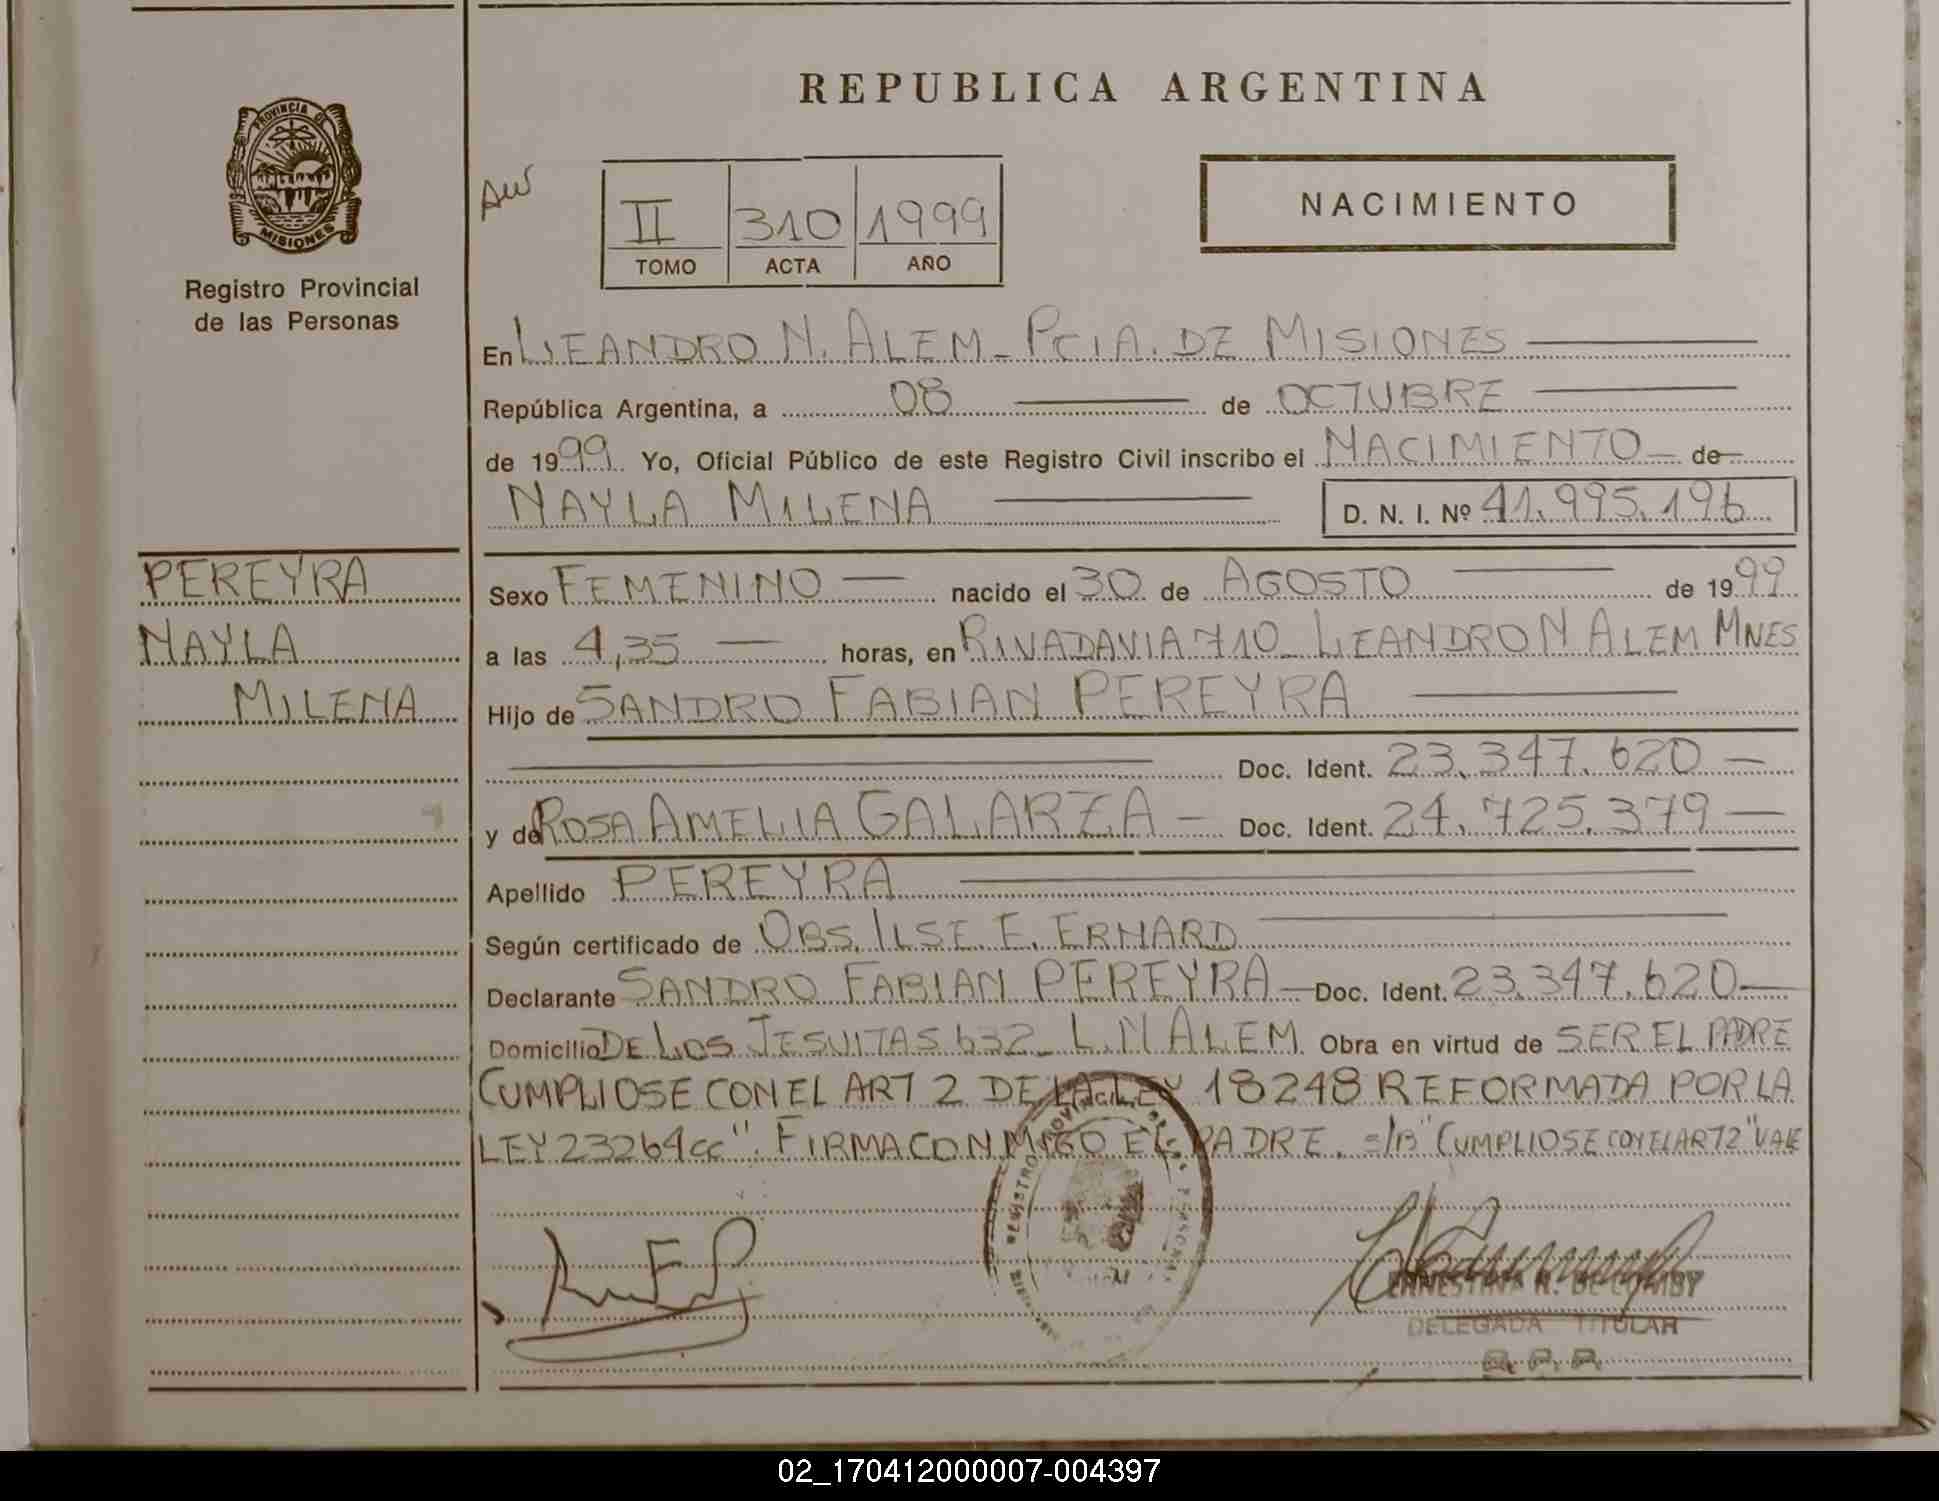 REPUBLICA ARGENTINA
PROVINCIA DE
MISIONES
Registro Provincial
de las Personas
II 310 1999
TOMO ACTA AÑO
NACIMIENTO
En LEANDRO N. ALEM - PCIA. DE MISIONES
República Argentina, a 08 de OCTUBRE
de 1999 Yo, Oficial Público de este Registro Civil inscribo el NACIMIENTO de
NAYLA MILENA D. N. I. Nº 41.995.196
PEREYRA
NAYLA
MILENA
Sexo FEMENINO nacido el 30 de AGOSTO de 1999
a las 4,35 horas, en RIVADAVIA 710 - LEANDRO N ALEM MNES
Hijo de SANDRO FABIAN PEREYRA
Doc. Ident. 23.347.620
y de ROSA AMELIA GALARZA Doc. Ident. 24.725.379
Apellido PEREYRA
Según certificado de OBS. ILSE E. ERHARD
Declarante SANDRO FABIAN PEREYRA Doc. Ident. 23.347.620
Domicilio DE LOS JESUITAS 632 - L.N ALEM. Obra en virtud de SER EL PADRE
CUMPLIOSE CON EL ART 2 DE LA LEY 18248 REFORMADA POR LA
LEY 23264 cc". FIRMA CONMIGO EL PADRE. =/B "CUMPLIOSE CON EL ART 2" VALE
DELEGADA TITULAR
R. P. P.
02_170412000007-004397